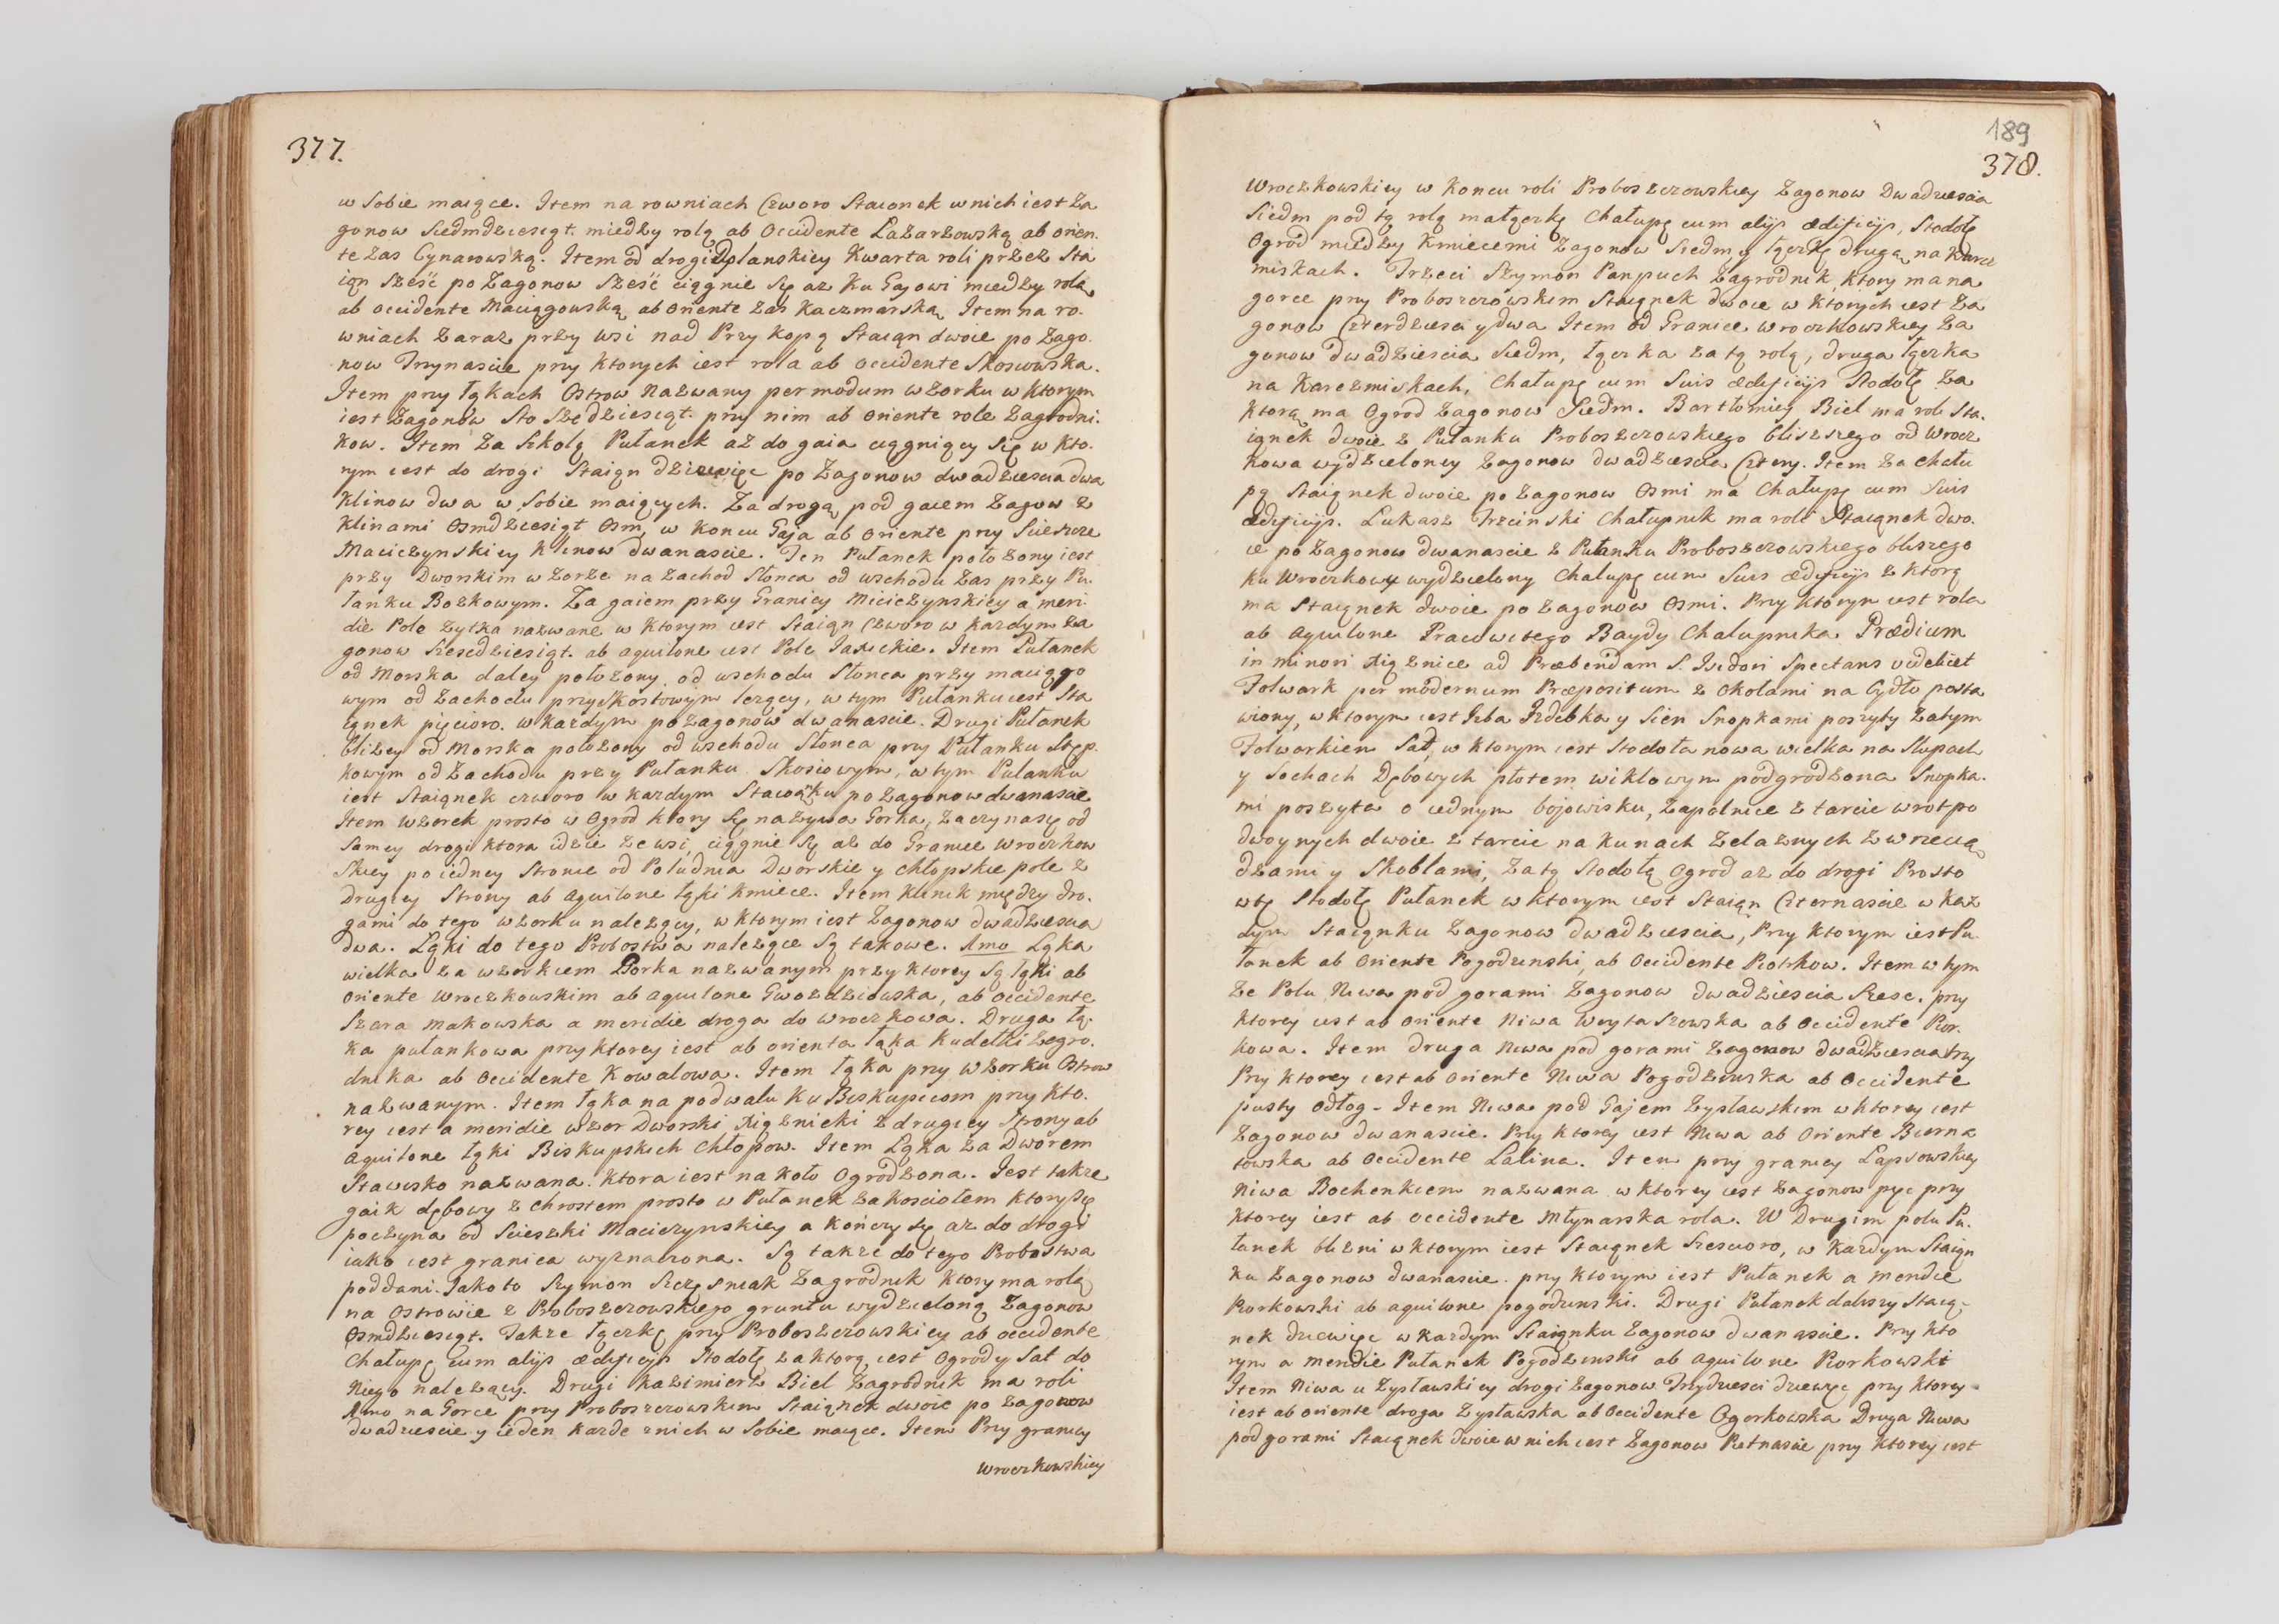 377.
w Sobie maiące. Item na rowniach Czworo Staionek w nich iest Za
gonow Siedmdziesiąt. miedzy rolą ab Occidente Lazarzowską ab orien.
te zas Cynarowską. Item od drogi Kwarta roli przez Sta
iąn Sześć po Zagonow Sześć ciągnie Się az Ku Gajowi miedzy rolą
ab occidente Maciągowską, ab oriente zas Kaczmarską, Item na ro.
wniach Zaraz przy wsi nad Przykopą Staiąn dwoie po Zago.
now Trzynascie przy ktorych iest rola ab occidente Skosiowska.
Item przy łąkach Ostrow Nazwany per modum wzorku w ktorym
iest Zagonów Sto Szędziesiąt. przy nim ab oriente role Zagrodni.
kow. Item Za Szkolą Pułanek aż do gaia ciągnący Się w kto.
rym iest do drogi Staiąn dziewięc po Zagonow dwadziescia dwa
Klinow dwa w Sobie maiących. Za drogą pod gaiem Zagow z
Klinami Osmdziesiąt Osm, w Koncu Gaja ab oriente przy Scieszce
Macieżynskiey Klinow dwanascie. Ten Pułanek położony iest
przy Dworskim wzorze na Zachod Słonca od wschodu Zas przy Pu.
łanku Bozkowym. Za gaiem przy Granicy Micieżynskiey a meri
die Pole Zytka nazwane w ktorym iest Staiąn Czworo w kazdym Za
gonow Szescdziesiąt. ab aquilone iest Pole Jasieckie. Item Pułanek
od Morska daley położony od wschodu Słonca przy maciągo
wym od Zachodu przy Skostowym lezący, w tym Pułanku iest Sta
iąnek pięcioro. w kazdym po zagonów dwanascie. Drugi Pułanek
bliżey od Morska położony od wschodu Słonca przy Pułanku Stęp.
kowym od Zachodu przy Pułanku Skosiowym, w tym Pułanku
iest Staiąnek czworo w kazdym Staiąnku po zagonow dwanascie
Item Wzorek prosto w Ogrod ktory Się nazywa Gorka, zaczyna się od
Samey drogi ktora idzie ze wsi, ciągnie Się aż do Granice Wroczkow
Skiey po iedney Stronie od Południa Dworskie y chłopskie pole z
Drugiey Strony ab aquilone łąki kmiece. Item Klinik między dro.
gami do tego wzorku nalezący, w ktorym iest Zagonow dwadziescia
dwa. Łąki do tego Probostwa nalezące Są takowe. 1mo Łąka
wielka za wzorkiem Gorka nazwanym przy ktorey Są łąki ab
oriente Wroczkowskim ab aquilone Gwozdziowska, ab occidente
Szara makowska a meridie droga do Wroczkowa. Druga łą.
ka pułankowa przy ktorey iest ab orienta łąka Kudełki Zagro.
dnika ab Occidente Kowalowa. Item łąka przy wzorku Ostrow
nazwanym. Item łąka na podwalu Ku Biskupicom przy kto.
rey iest a meridie wzor Dworski Xiąznicki z drugiey Strony ab
aquilone łąki Biskupskich Chłopow. Item Łąka za Dworem
Stawisko nazwana. ktora iest na koło Ogrodzona. Iest takze
gaik dębowy z chrostem prosto w Pułanek za kosciołem ktory Się
poczyna od Scieszki Macieżynskiey a Kończy Się az do drogi
iako iest granica wyznaczona. Są takze do tego Probostwa
poddani. Jako to Szymon Szczęsniak Zagrodnik ktory ma rolą
na Ostrowie z Proboszczowskiego gruntu wydzieloną Zagonow
Osmdziesiąt. Takze łączkę przy Proboszczowskiey ab occidente
Chałupę cum alijs ædificijs Stodołę za ktorą, iest Ogrod y Sat do
Niego nalezący. Drugi Kazimierz Biel Zagrodnik ma roli
1mo na Gorce przy Proboszczowskim Staiąnek dwoie po zagonow
dwadziescie y ieden kazde z nich w Sobie maiące. Item Przy granicy
Wroczkowskiey
189
378.
Wroczkowskiey w Koncu roli Proboszczowskiey Zagonow Dwadziescia
Siedm pod tą rolą małączkę Chałupę cum alijs ædificijs, Stodołę
Ogrod miedzy Kmiecemi Zagonow Siedm y łączkę drugą na Karcz
miskach. Trzeci Szymon Panpuch Zagrodnik, ktory ma na
gorce przy Proboszczowskim Staiąnek dwoie w ktorych iest Za
gonow Czterdziesci y dwa Item od Granice Wroczkowskiey Za
gonow dwadziescia Siedm, łączka za tą rolą, druga łączka
na Karczmiskach, Chałupę cum Suis ædificijs Stodołę Za
ktorą ma Ogrod Zagonow Siedm. Bartłomiey Biel ma roli Sta.
iąnek dwoie z Pułanku Proboszczowskiego bliszszego od Wrocz
kowa wydzieloney Zagonow dwadziescia Cztery. Item Za Chału
pą Staiąnek dwoie po Zagonow Osmi ma Chałupę cum Suis
ædificijs. Lukasz Trzcinski Chałupnik ma roli Staiąnek dwo.
ie po Zagonow dwanascie z Pułanku Proboszczowskiego bliszego
ku Wroczkowu wydzielony Chałupę cum Suis ædificijs z ktorą
ma Staiąnek dwoie po zagonow Osmi. Przy ktorym iest rola
ab aquilone Pracowitego Baydy Chałupnika Prædium
in minori Xiąznice ad Præbendam S. Isidori Spectans videlicet
Folwark per modernum Præpositum z Okołami na Bydło posta
wiony, w ktorym iest Izba Izdebka y Sień Snopkami poszyty Za tym
Folwarkiem Sad, w ktorym iest Stodoła nowa wielka na Słupach
y Sochach Dębowych płotem wiklowym podgrodzona Snopka.
mi poszyta o iednym bojowisku, Zapolnice z tarcic wrot po
dwoynych dwoie z tarcic na kunach Zelaznych z wrzecią
dzami y Skoblami, za tą Stodołą Ogrod az do drogi Prosto
w tę Stodołę Pułanek w ktorym iest Staiąn Czternascie w kaz
dym Staiąnku Zagonow dwadziescia, Przy ktorym iest Pu.
łanek ab Oriente Pogodzinski, ab Occidente Piotrkow. Item w tym
ze Polu Niwa pod gorami Zagonow dwadziescia Szesc. przy
ktorey iest ab oriente Niwa Woytaszowska ab Occidente Pior.
kowa. Item druga Niwa pod gorami Zagonow dwadziescia trzy
Przy ktorey iest ab oriente Niwa Pogodzinska ab Occidente
pusty odłog. Item Niwa pod Gajem Zysławskim w ktorey iest
Zagonow dwanascie. Przy ktorey iest Niwa ab Oriente Bierna
towska ab Occidente Lalina. Item przy granicy Lapszowskiey
Niwa Bochenkiem nazwana w ktorey iest Zagonow pięc przy
ktorey iest ab Occidente Młynarska rola. W Drugim polu Pu.
łanek blizni w ktorym iest Staiąnek Szescioro, w kazdym Staiąn
ku Zagonow dwanascie. przy ktorym iest Pułanek a meridie
Piorkowski ab aquilone pogodzinski. Drugi Pułanek dalszy Staią-
nek dziewięc w kazdym Staiąnku Zagonow dwanascie. Przy kto
rym a meridie Pułanek Pogodzinski ab aquilone Piorkowski
Item Niwa u Zysławskiey drogi Zagonow Trzydziesci dziewięc przy ktorey
iest ab oriente droga Zysławska ab Occidente Ogorkowska Druga Niwa
pod gorami Staiąnek dwoie w nich iest Zagonow Pietnascie przy ktorey iest